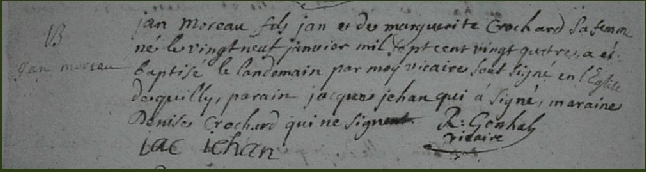 B
jan moreau
jan moreau fils jan et de marguerite Crochard sa femme
né le vingt neuf janvier mil sept cent vingt quatre, a est
baptisé le landemain par moy vicaire sout signé en l'Eglise
parain jacques jehan qui a signé, maraine
Denise Crochard qui ne signent
vicaire
iac iehan